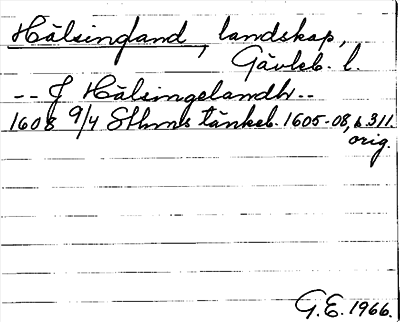 Hälsingland, landskap,
Gävleb. l.
-- J Hälsingelandh --
1608 9/4 Sthms tänkeb. 1605-08, s 311.
orig.
G.E. 1966.